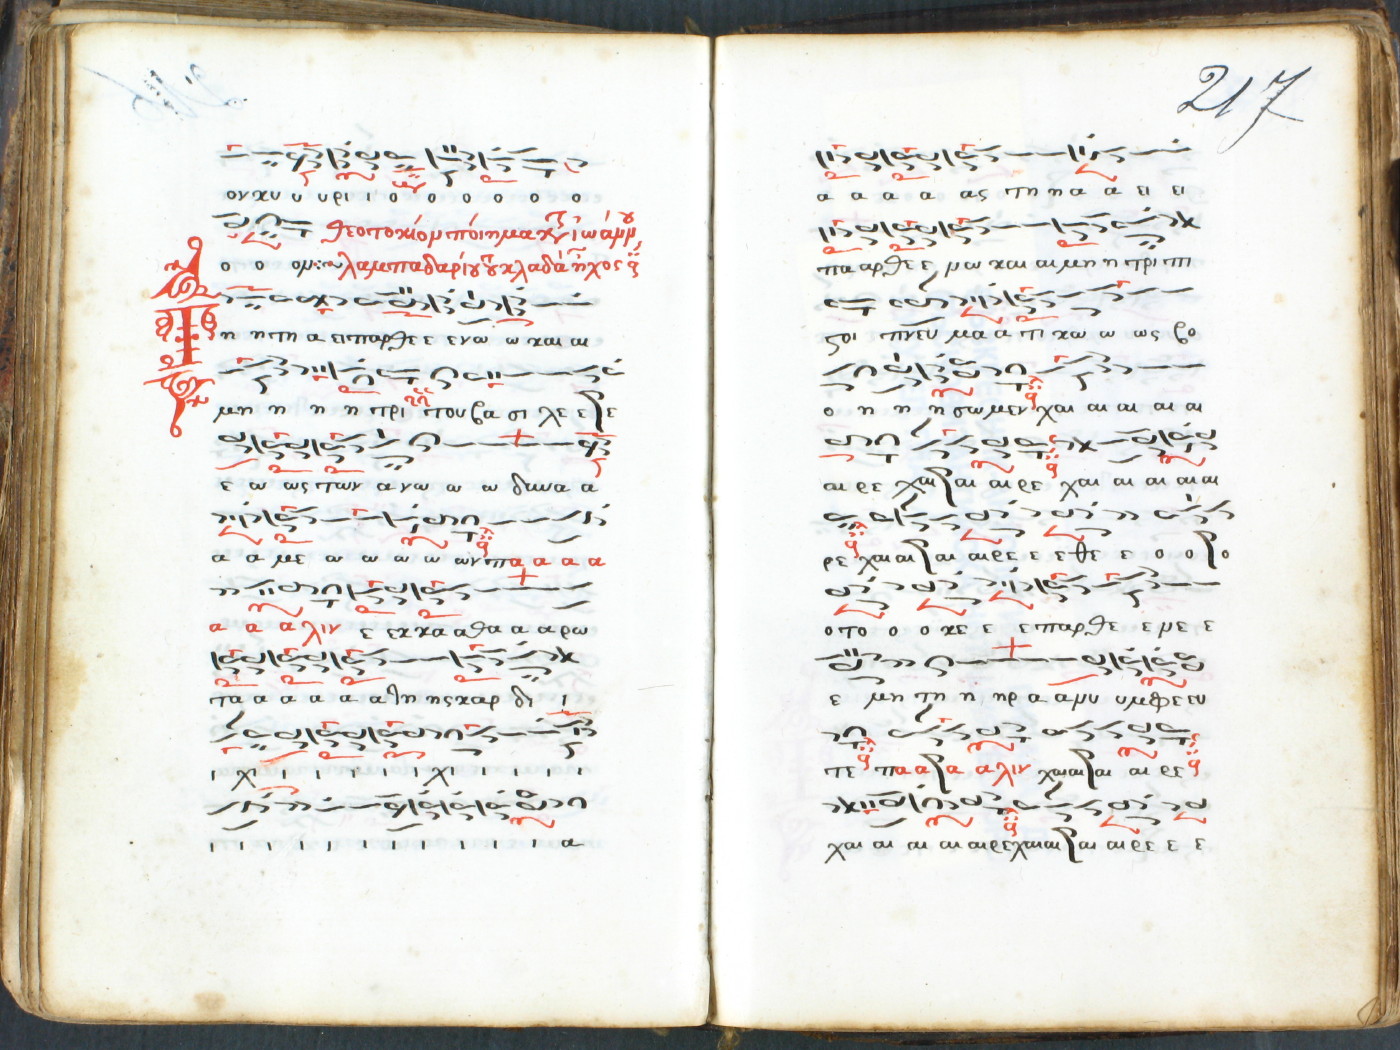 ον χυ υ υρι ι ο ο ο ο ο ο ο
θεοτοκίον ποίημα κυ ιωάνν
ο ο ον: λαμπαδαρίου του κλαδά ἦχος
Τη η τη α ει παρθε ε ε νω ω και αι
μη η η η η τρι του βα σι λε ε ε
ε ω ως των α νω ω ω δυνα α
α α με ω ω ω ω ων πα α α α
α α α λιν ε εκ κα α θα α α ρω
τα α α α α α λη ης καρ δι ι
ι χ ι ι ι ι ι χ ι ι ι ι ι
ι ι ι ι ι ι ι ι ι ι ι α
217
α α α α ας τη η α α ει ει
πα αρθε ε νω και αι μη η τρι πι
ζοι πνευ μα α τι κω ω ως βο
ο η η η σω μεν χαι αι αι αι αι
αι ρε χαι αι αι ρε χαι αι αι αι αι
ρε χαι αι αι αι ρε ε ε θε ε ο ο ο
ο το ο ο κε ε ε παρθε ε νε ε
ε μη τη η ηρ α α νυ υμφε ευ
τε πα α α α α λιν χαι αι αι αι ρε
χαι αι αι αι αι ρε χαι αι αι αι ρε ε ε